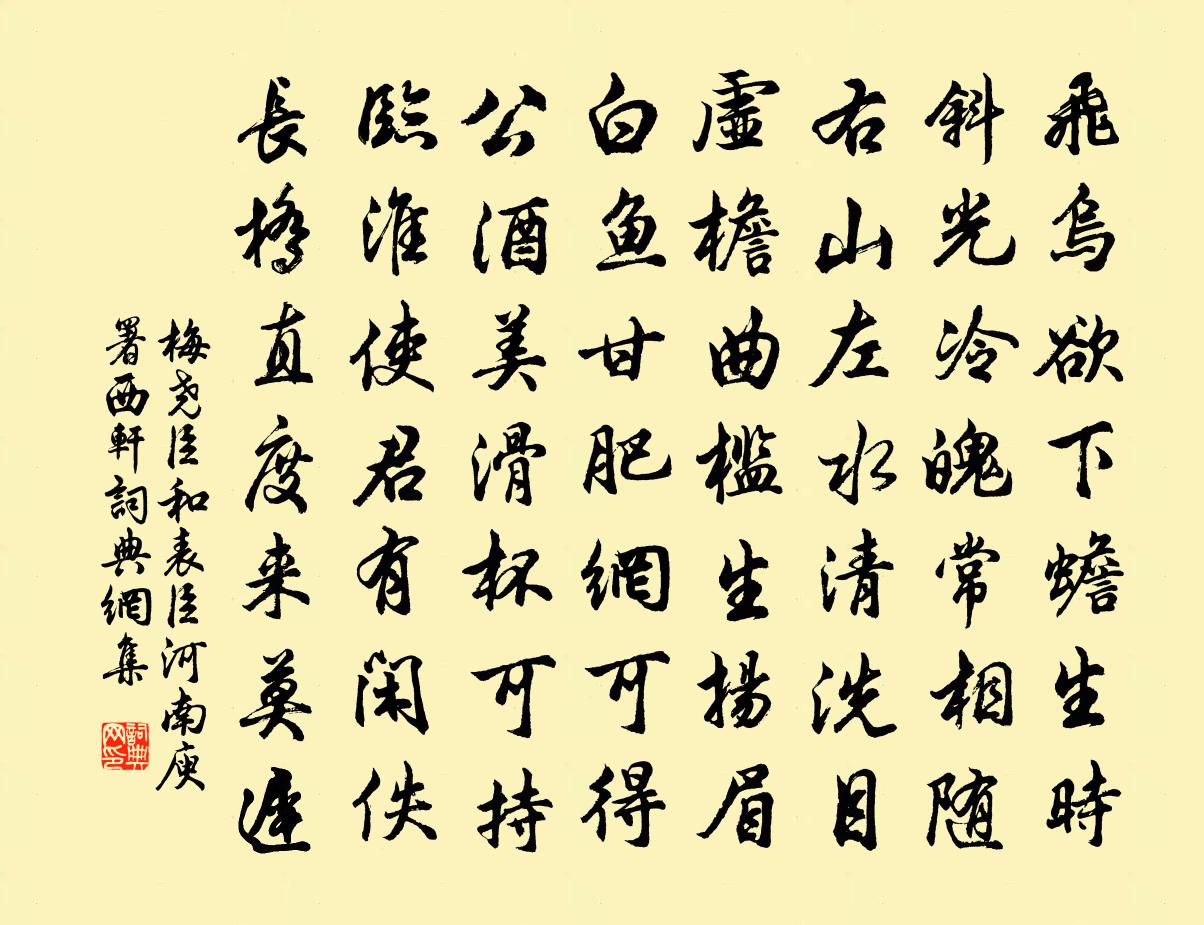 飛烏欲下蟾生時
斜光冷魄常相随
右山左水清洗目
虛檐曲檻生揚眉
白鱼甘肥網可得
公酒美滑杯可持
臨淮使君有閑佚
長橋直度来莫遲
梅尧臣和表臣河南庾
署西軒詞典網集
詞典
网印